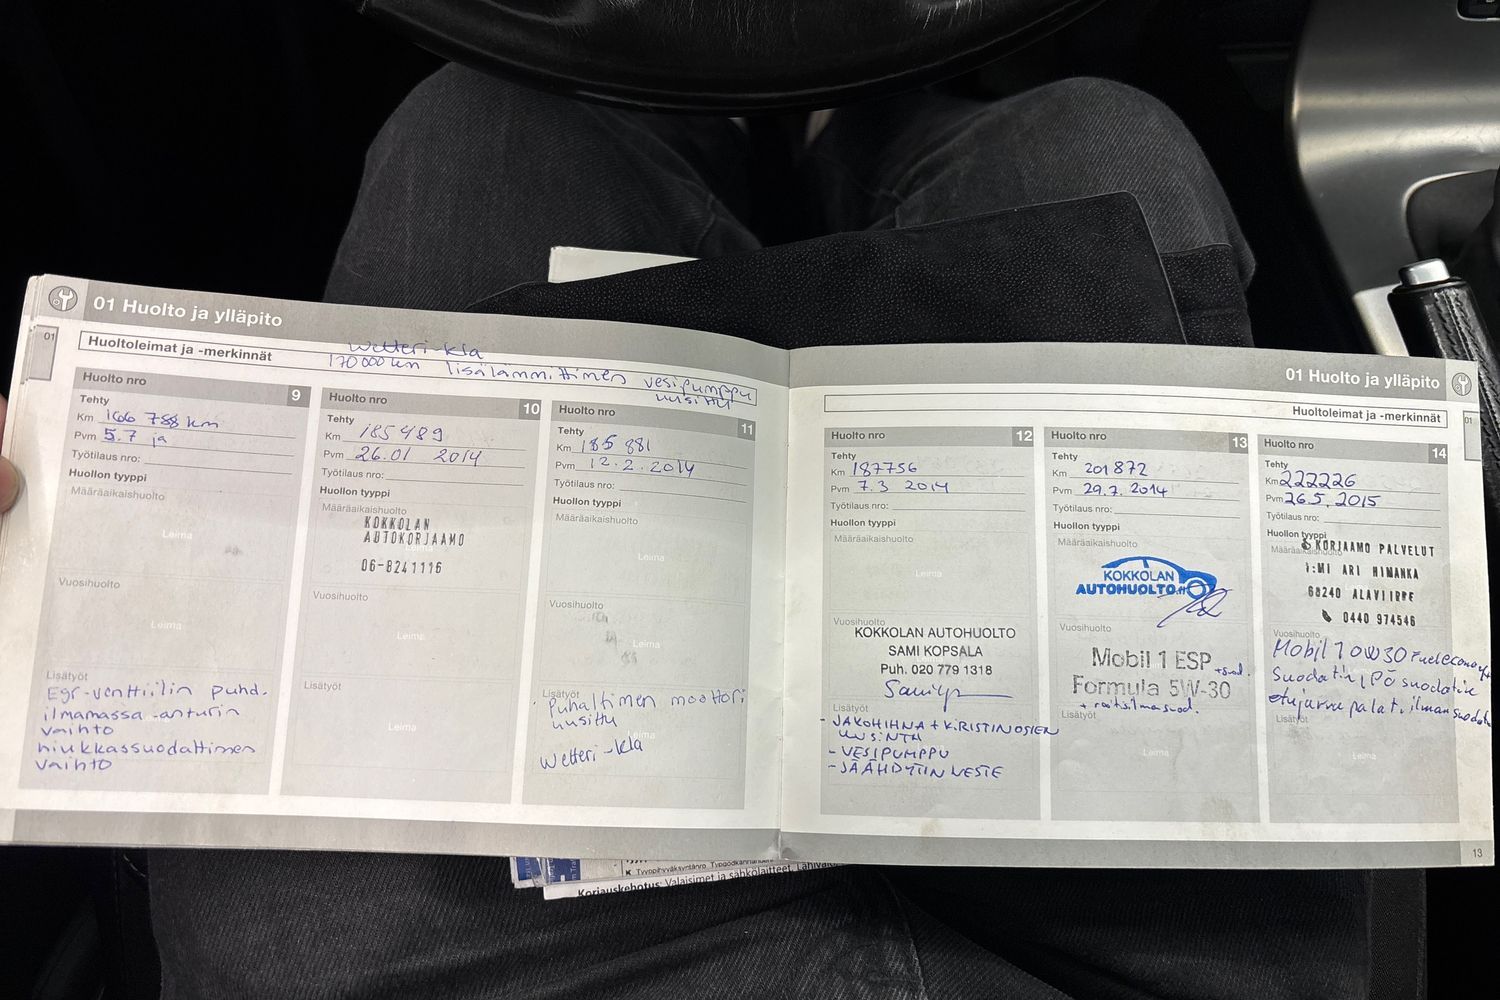 01 Huolto ja ylläpito
01
Huoltoleimat ja -merkinnät
Wetteri-kla
170000km lisälämmittimen vesipumppu
uusittu
Huolto nro 9
Tehty
Km 166 788 km
Pvm 5.7 ja
Työtilaus nro:
Huollon tyyppi
Määräaikaishuolto
Leima
Vuosihuolto
Leima
Lisätyöt
Egr-venttiilin puhd.
ilmamassa-anturin
vaihto
hiukkassuodattimen
vaihto
Huolto nro 10
Tehty
Km 185489
Pvm 26.01 2014
Työtilaus nro:
Huollon tyyppi
Määräaikaishuolto
KOKKOLAN
AUTOKORJAAMO
Leima
06-8241116
Vuosihuolto
Leima
Lisätyöt
Leima
Huolto nro 11
Tehty
Km 185 881
Pvm 12.2.2014
Työtilaus nro:
Huollon tyyppi
Määräaikaishuolto
Leima
Vuosihuolto
Leima
Lisätyöt
Puhaltimen moottori
uusittu
Leima
Wetteri-kla
01 Huolto ja ylläpito
Huoltoleimat ja -merkinnät
01
Huolto nro 12
Tehty
Km 187756
Pvm 7.3 2014
Työtilaus nro:
Huollon tyyppi
Määräaikaishuolto
Leima
Vuosihuolto
KOKKOLAN AUTOHUOLTO
SAMI KOPSALA
Puh. 020 779 1318
Lisätyöt
- JAKOHIHNA + KIRISTINOSIEN
UUSINTA
- VESIPUMPPU
- JÄÄHDYTIN NESTE
Huolto nro 13
Tehty
Km 201872
Pvm 29.7.2014
Työtilaus nro:
Huollon tyyppi
Määräaikaishuolto
KOKKOLAN
AUTOHUOLTO
Vuosihuolto
Mobil 1 ESP +suod.
Formula 5W-30
+ raitisilmasuod.
Lisätyöt
Leima
Huolto nro 14
Tehty
Km 222226
Pvm 26.5.2015
Työtilaus nro:
Huollon tyyppi
Määräaikaishuolto
KORJAAMO PALVELUT
T:MI ARI HIMANKA
68240 ALAVIIRRE
0440 974546
Vuosihuolto
Mobil 1 0W30 Fueleconomy
Suodatin, PÖ suodatin
etujarrupalat, ilmansuodatin
Lisätyöt
Leima
13
Tyyppihyväksyntänro
Korjauskehotus: Valaisimet ja sähkölaitteet,